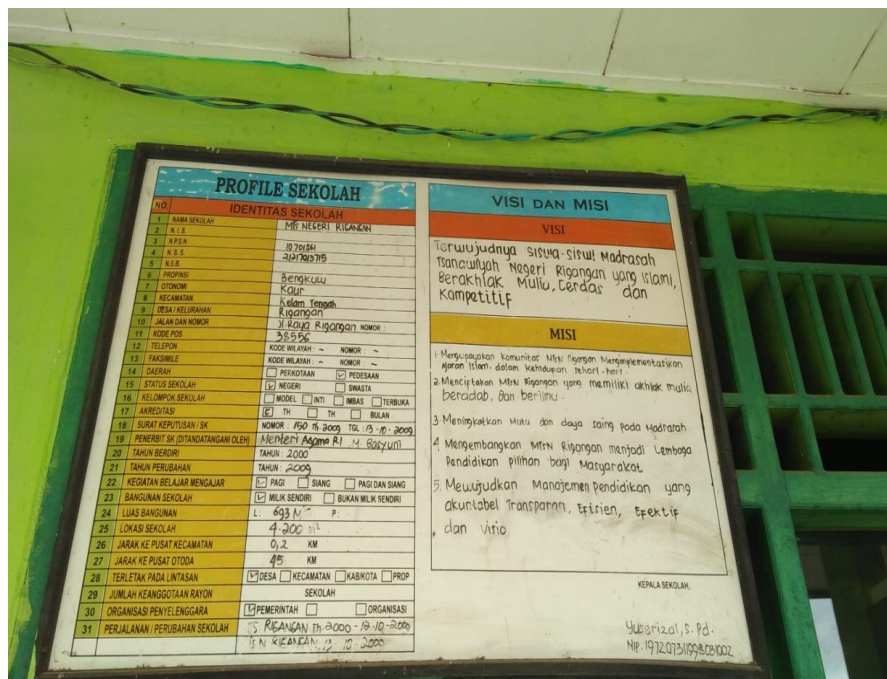 PROFILE SEKOLAH
NO. IDENTITAS SEKOLAH
1 NAMA SEKOLAH MTs NEGERI RIGANGAN
2 N. I. S.
3 N.P.S.N 10701361
4 N. S. S 21217013715
5 N.S.B.
6 PROPINSI Bengkulu
7 OTONOMI Kaur
8 KECAMATAN Kelam Tengah
9 DESA / KELURAHAN Rigangan
10 JALAN DAN NOMOR Jl. Raya Rigangan NOMOR :
11 KODE POS 38556
12 TELEPON KODE WILAYAH : - NOMOR : -
13 FAKSIMILE KODE WILAYAH : - NOMOR : -
14 DAERAH PERKOTAAN PEDESAAN
15 STATUS SEKOLAH NEGERI SWASTA
16 KELOMPOK SEKOLAH MODEL INTI IMBAS TERBUKA
17 AKREDITASI C TH TH BULAN
18 SURAT KEPUTUSAN / SK NOMOR : 150 Th 2009 TGL : 13-10-2009
19 PENERBIT SK (DITANDATANGANI OLEH) Menteri Agama RI M. Basyuni
20 TAHUN BERDIRI TAHUN : 2000
21 TAHUN PERUBAHAN TAHUN : 2009
22 KEGIATAN BELAJAR MENGAJAR PAGI SIANG PAGI DAN SIANG
23 BANGUNAN SEKOLAH MILIK SENDIRI BUKAN MILIK SENDIRI
24 LUAS BANGUNAN L : 693 M P :
25 LOKASI SEKOLAH 4.200
26 JARAK KE PUSAT KECAMATAN 0,2 KM
27 JARAK KE PUSAT OTODA 45 KM
28 TERLETAK PADA LINTASAN DESA KECAMATAN KAB/KOTA PROP
29 JUMLAH KEANGGOTAAN RAYON SEKOLAH
30 ORGANISASI PENYELENGGARA PEMERINTAH ORGANISASI
31 PERJALANAN / PERUBAHAN SEKOLAH RIGANGAN Th. 2000 - 12-10-2000
RIGANGAN, 10-2000
VISI DAN MISI
VISI
Terwujudnya siswa-siswi Madrasah
Tsanawiyah Negeri Rigangan yang islami,
Berakhlak Mulia, Cerdas dan
Kompetitif
MISI
1. Mengupayakan komunitas MTsN Rigangan Mengimplementasikan
Ajaran Islam. dalam kehidupan sehari-hari.
2. Menciptakan MTsN Rigangan yang memiliki akhlak mulia
beradab, dan berilmu.
3. Meningkatkan Mutu dan daya saing pada Madrasah
4. Mengembangkan MTsN Rigangan menjadi Lembaga
Pendidikan pilihan bagi Masyarakat
5. Mewujudkan Manajemen Pendidikan yang
akuntabel Transparan, Efisien, Efektif
dan Visio
KEPALA SEKOLAH,
Yuserizal, S.Pd.